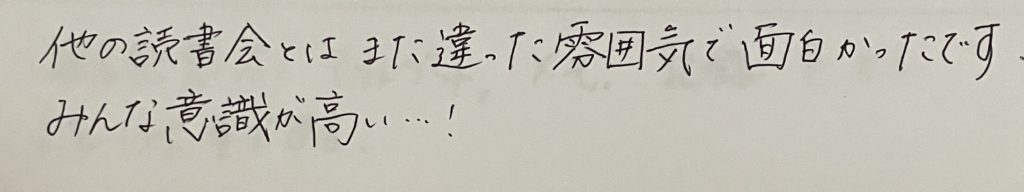 他の読書会とはまた違った雰囲気で面白かったです、
みんな意識が高い…!